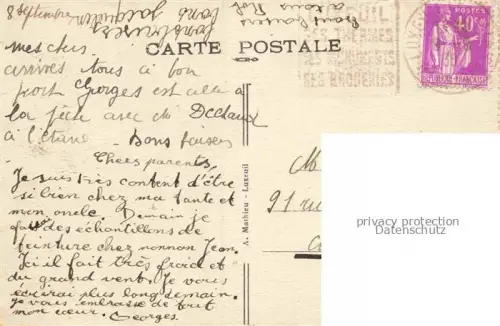 8 septembre
CARTE POSTALE
mes chers
arrivés tous à bon
port Georges est allé à
la fête avec Mr Declaux
à l'étang Bons baisers
Chers parents,
Je suis très content d'être
si bien chez ma tante et
mon oncle. Demain je
des échantillons de
peinture chez nonnon Jean.
Ici il fait très froid et
du grand vent. Je vous
écrirai plus long demain.
Je vous embrasse de tout
mon cœur. Georges.
A. Mathieu - Luxeuil
M
91 rue
SES THERMES
SES BRODERIES
POSTES
40c
REPUBLIQUE FRANÇAISE
privacy protection
Datenschutz